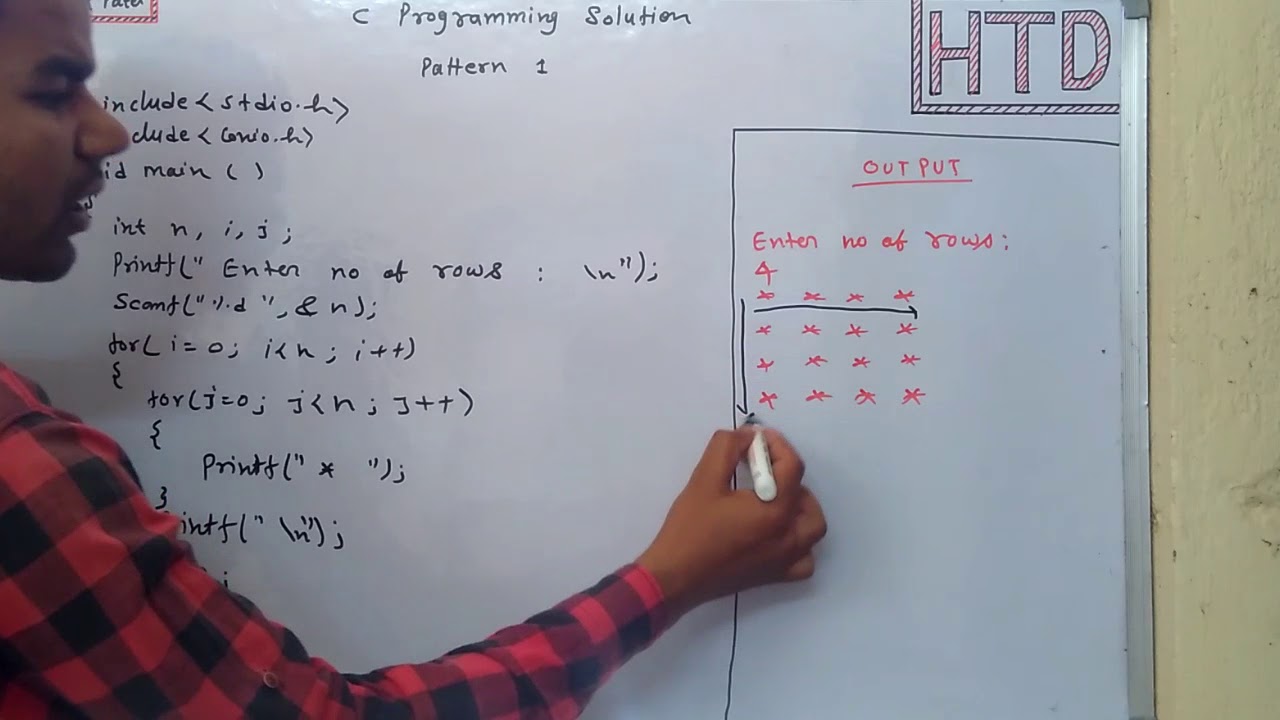 C Programming Solution
HTD
Pattern 1
include<stdio.h>
clude<conio.h>
id main ( )
int n, i, j ;
Printf(" Enter no of rows : \n");
Scanf("%d ", & n);
for( i = 0; i<n ; i++)
{
for(j=0; j<n ; j++)
{
Printf(" * ");
}
intf(" \n");
OUTPUT
Enter no of rows:
4
* * * *
* * * *
* * * *
* * * *